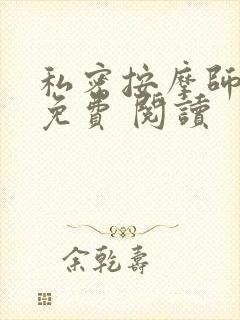 私密按摩師
免費 閱讀
余乾壽